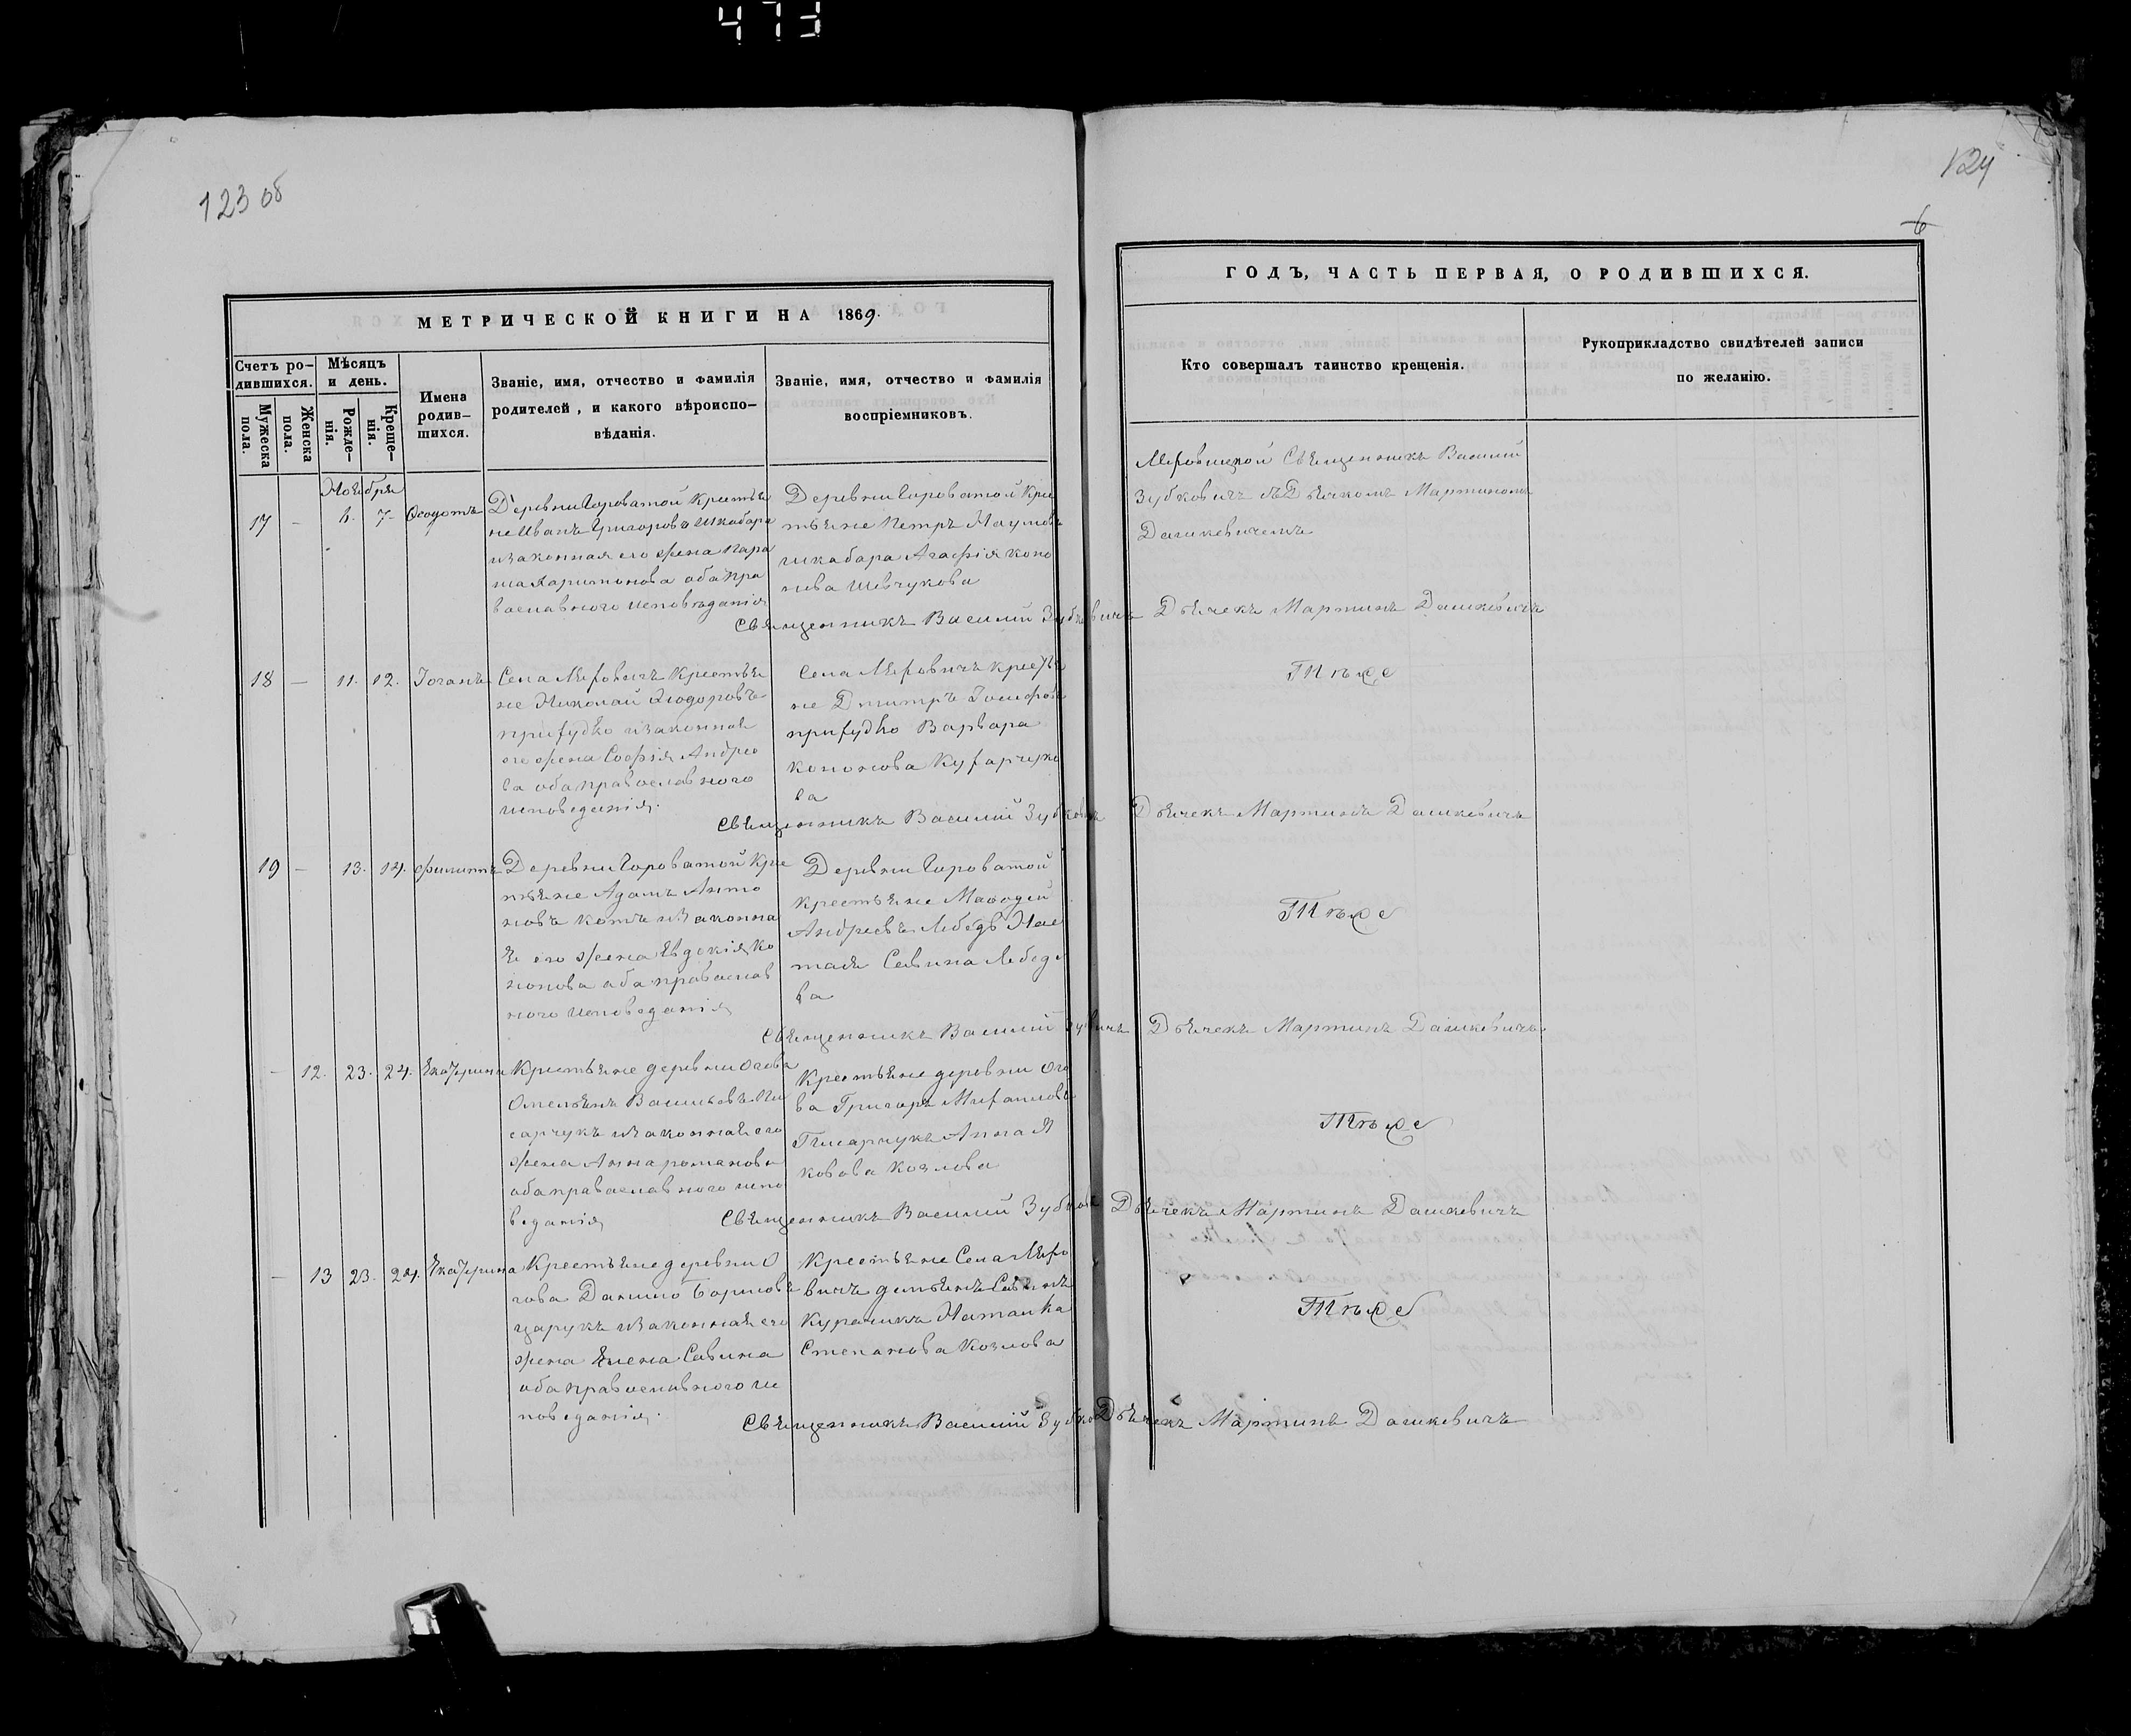 473
123 об
124
6
МЕТРИЧЕСКОЙ КНИГИ НА 1869.
Счетъ ро-
дившихся.
Мужеска
пола.
Женска
пола.
Мѣсяцъ
и день.
Рожде-
нія.
Креще-
нія.
Имена
родив-
шихся.
Званіе, имя, отчество и фамилія
родителей, и какого вѣроиспо-
вѣданія.
Званіе, имя, отчество и фамилія
воспріемниковъ.
ГОДЪ, ЧАСТЬ ПЕРВАЯ, О РОДИВШИХСЯ.
Кто совершалъ таинство крещенія.
Рукоприкладство свидѣтелей записи
по желанію.
Ноября
17 – 6. 7. Ѳеодотъ
Деревни Гороватой Крестья
не Иванъ Григоровъ Шкабара
и законная его жена Пара
ша Харитонова оба пра
вославного исповѣданія
Деревни Гороватой Кре
стьяне Петръ Наумовъ
шкабара Агафія Коно
нова Шевчукова
Священникъ Василий
Зубковичъ съ Дьячкомъ Мартиномъ
Дашкевичемъ
Священникъ Василий Зубковичъ Дьячекъ Мартинъ Дашкевичъ
18 – 11. 12. Іоганъ
Села Мефовичъ Крестья
не Николай Ѳеодоровъ
и законная
его жена Софія Андрее
ва оба православного
исповеданія.
Села Мефовичъ крестья
не Дмитръ Іосифовъ
Варвара
Кононова
ва
Тѣже
Священникъ Василий Дьячекъ Мартинъ Дашкевичъ
19 – 13. 14. Филипъ
Деревни Гороватой Кре
стьяне Адамъ Анто
новъ и законна
я его жена Евдокія Ко
нонова оба православ
ного исповеданія
Деревни Гороватой
крестьяне
Андреевъ Лебедь Нас
тася Савина Лебеде
ва
Тѣже
Священникъ Василий Дьячекъ Мартинъ Дашкевичъ
– 12. 23. 24. Екатерина
Крестьяне деревни Огова
Омельянъ Васильевъ Пи
сарчукъ и законная его
жена Анна романова
оба православного испо
веданія
Крестьяне деревни Ого
ва Григоръ Михаиловъ
Писарчукъ Анна Я
ковова Козлова
Тѣже
Священникъ Василий Дьячекъ Мартинъ Дашкевичъ
– 13 23. 24. Екатерина
Крестьяне деревни О
гова Данило Борисовъ
царукъ и законная его
жена Елена Савина
оба православного ис
поведанія.
Крестьяне Села Мефо
вичъ
Наталка
Степанова Козлова
Тѣже
Священникъ Василий Дьячекъ Мартинъ Дашкевичъ